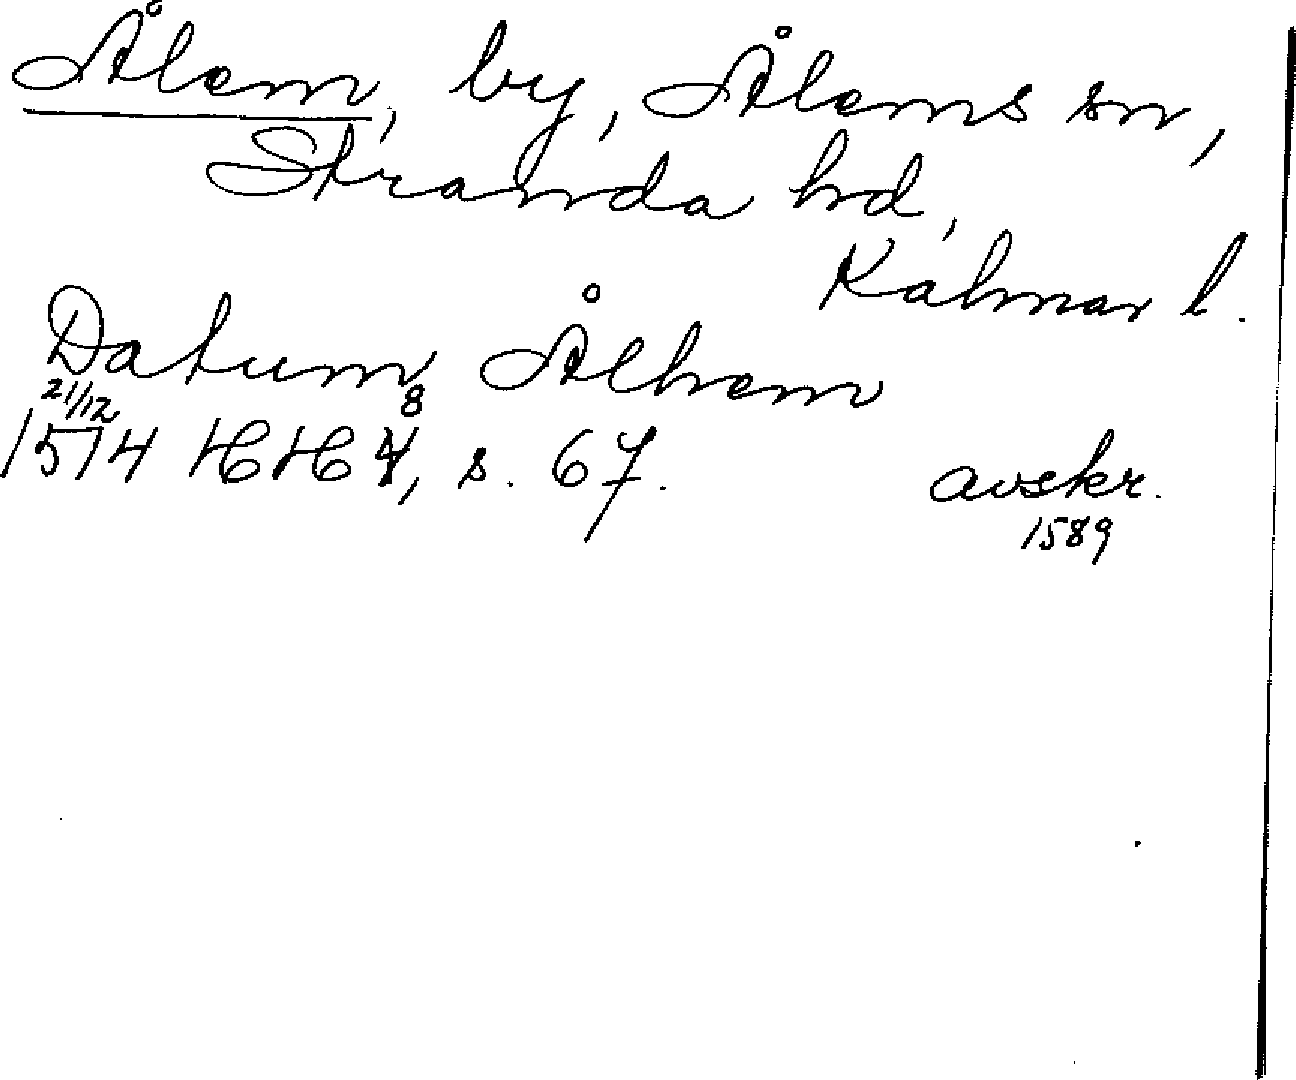 Ålem, by, Ålems sn,
Stranda hd,
Kalmar l.
Datum Ålhem
21/12 1574 HH 8, s. 67.
avskr.
1589